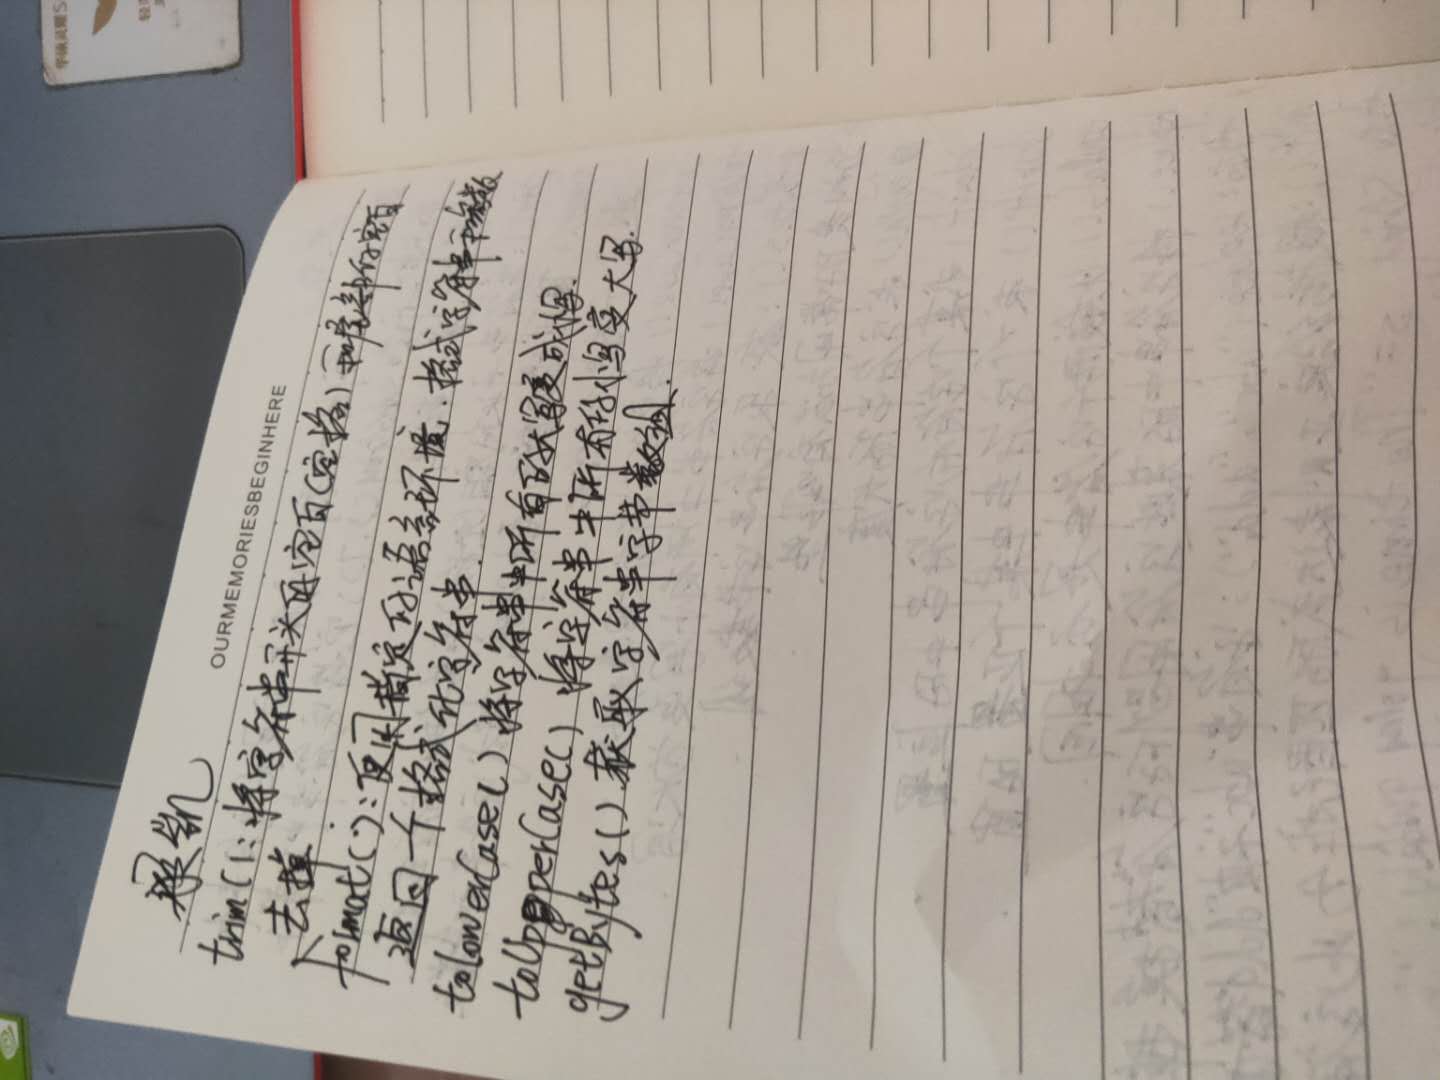 OURMEMORIESBEGINHERE
trim():将字符串开头的空白(空格)和尾部的空白
去掉
format():使用指定的语言环境.格式字符串和参数
返回一个格式化字符串.
toLowerCase()将字符串中所有的大写变成小写.
toUpperCase()将字符串中所有的小写变大写.
getBytes()获取字符串字节数组.